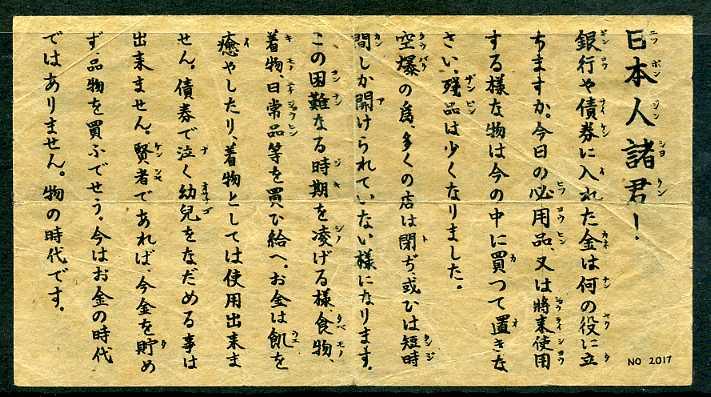 日本人諸君!
銀行や債券に入れた金は何の役に立
ちますか。今日の必用品、又は將来使用
する様な物は今の中に買つて置きな
さい。残品は少くなりました。
空爆の爲、多くの店は閉ぢ或ひは短時
間しか開けられていない様になります。
この困難なる時期を凌げる様、食物、
着物、日常品等を買ひ給へ。お金は飢を
癒やしたり、着物としては使用出来ま
せん。債券で泣く幼兒をなだめる事は
出来ません。賢者であれば、今金を貯め
ず、品物を買ふでせう。今はお金の時代
ではありません。物の時代です。
NO 2017